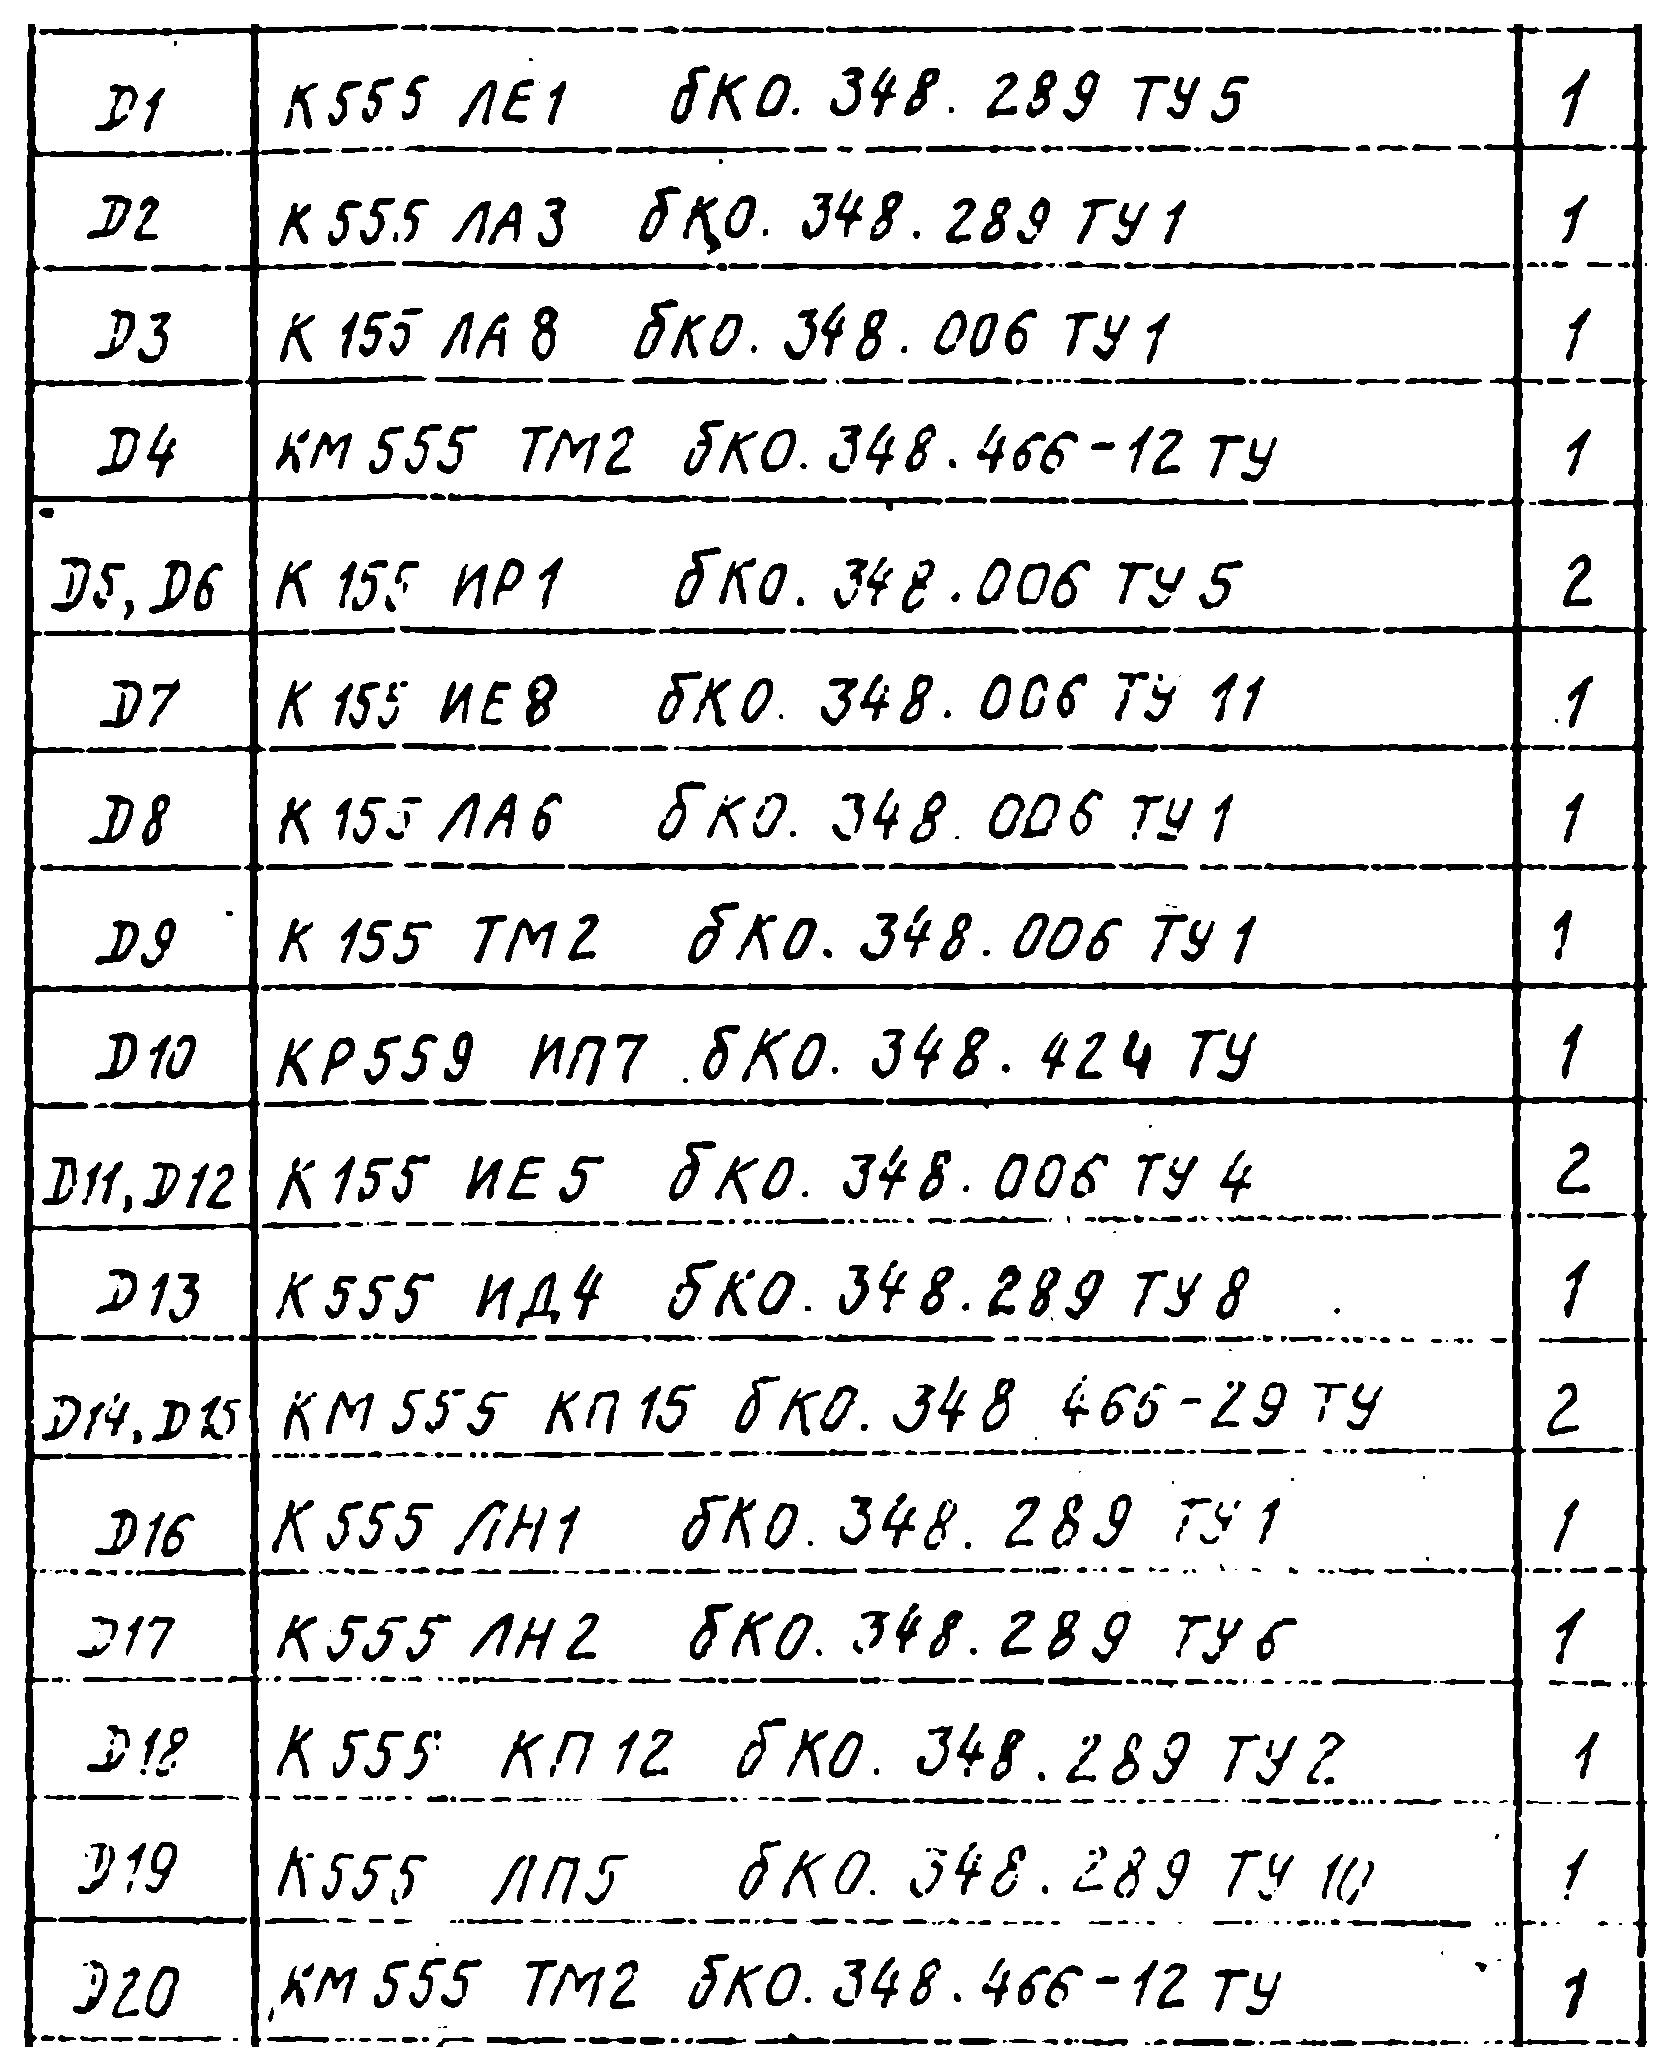 D1 К555 ЛЕ1 бКО. 348. 289 ТУ5 1
D2 К555 ЛА3 бКО. 348. 289 ТУ1 1
D3 К155 ЛА8 бКО. 348. 006 ТУ1 1
D4 КМ555 ТМ2 бКО. 348. 466-12 ТУ 1
D5, D6 К155 ИР1 бКО. 348. 006 ТУ5 2
D7 К155 ИЕ8 бКО. 348. 006 ТУ 11 1
D8 К155 ЛА6 бКО. 348. 006 ТУ1 1
D9 К155 ТМ2 бКО. 348. 006 ТУ1 1
D10 КР559 ИП7 бКО. 348. 424 ТУ 1
D11, D12 К155 ИЕ5 бКО. 348. 006 ТУ 4 2
D13 К555 ИД4 бКО. 348. 289 ТУ 8 1
D14, D15 КМ555 КП15 бКО. 348 466-29 ТУ 2
D16 К555 ЛН1 бКО. 348. 289 ТУ1 1
D17 К555 ЛН2 бКО. 348. 289 ТУ6 1
D18 К555 КП12 бКО. 348. 289 ТУ2 1
D19 К555 ЛП5 бКО. 348. 289 ТУ 10 1
D20 КМ555 ТМ2 бКО. 348. 466-12 ТУ 1